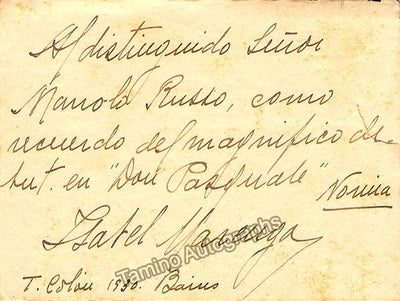 Al distinguido Señor
Manolo Russo, como
recuerdo del magnifico de-
but. en "Don Pasquale"
Norina
Isabel
T. Colón 1930. Baires
Tamino Autographs